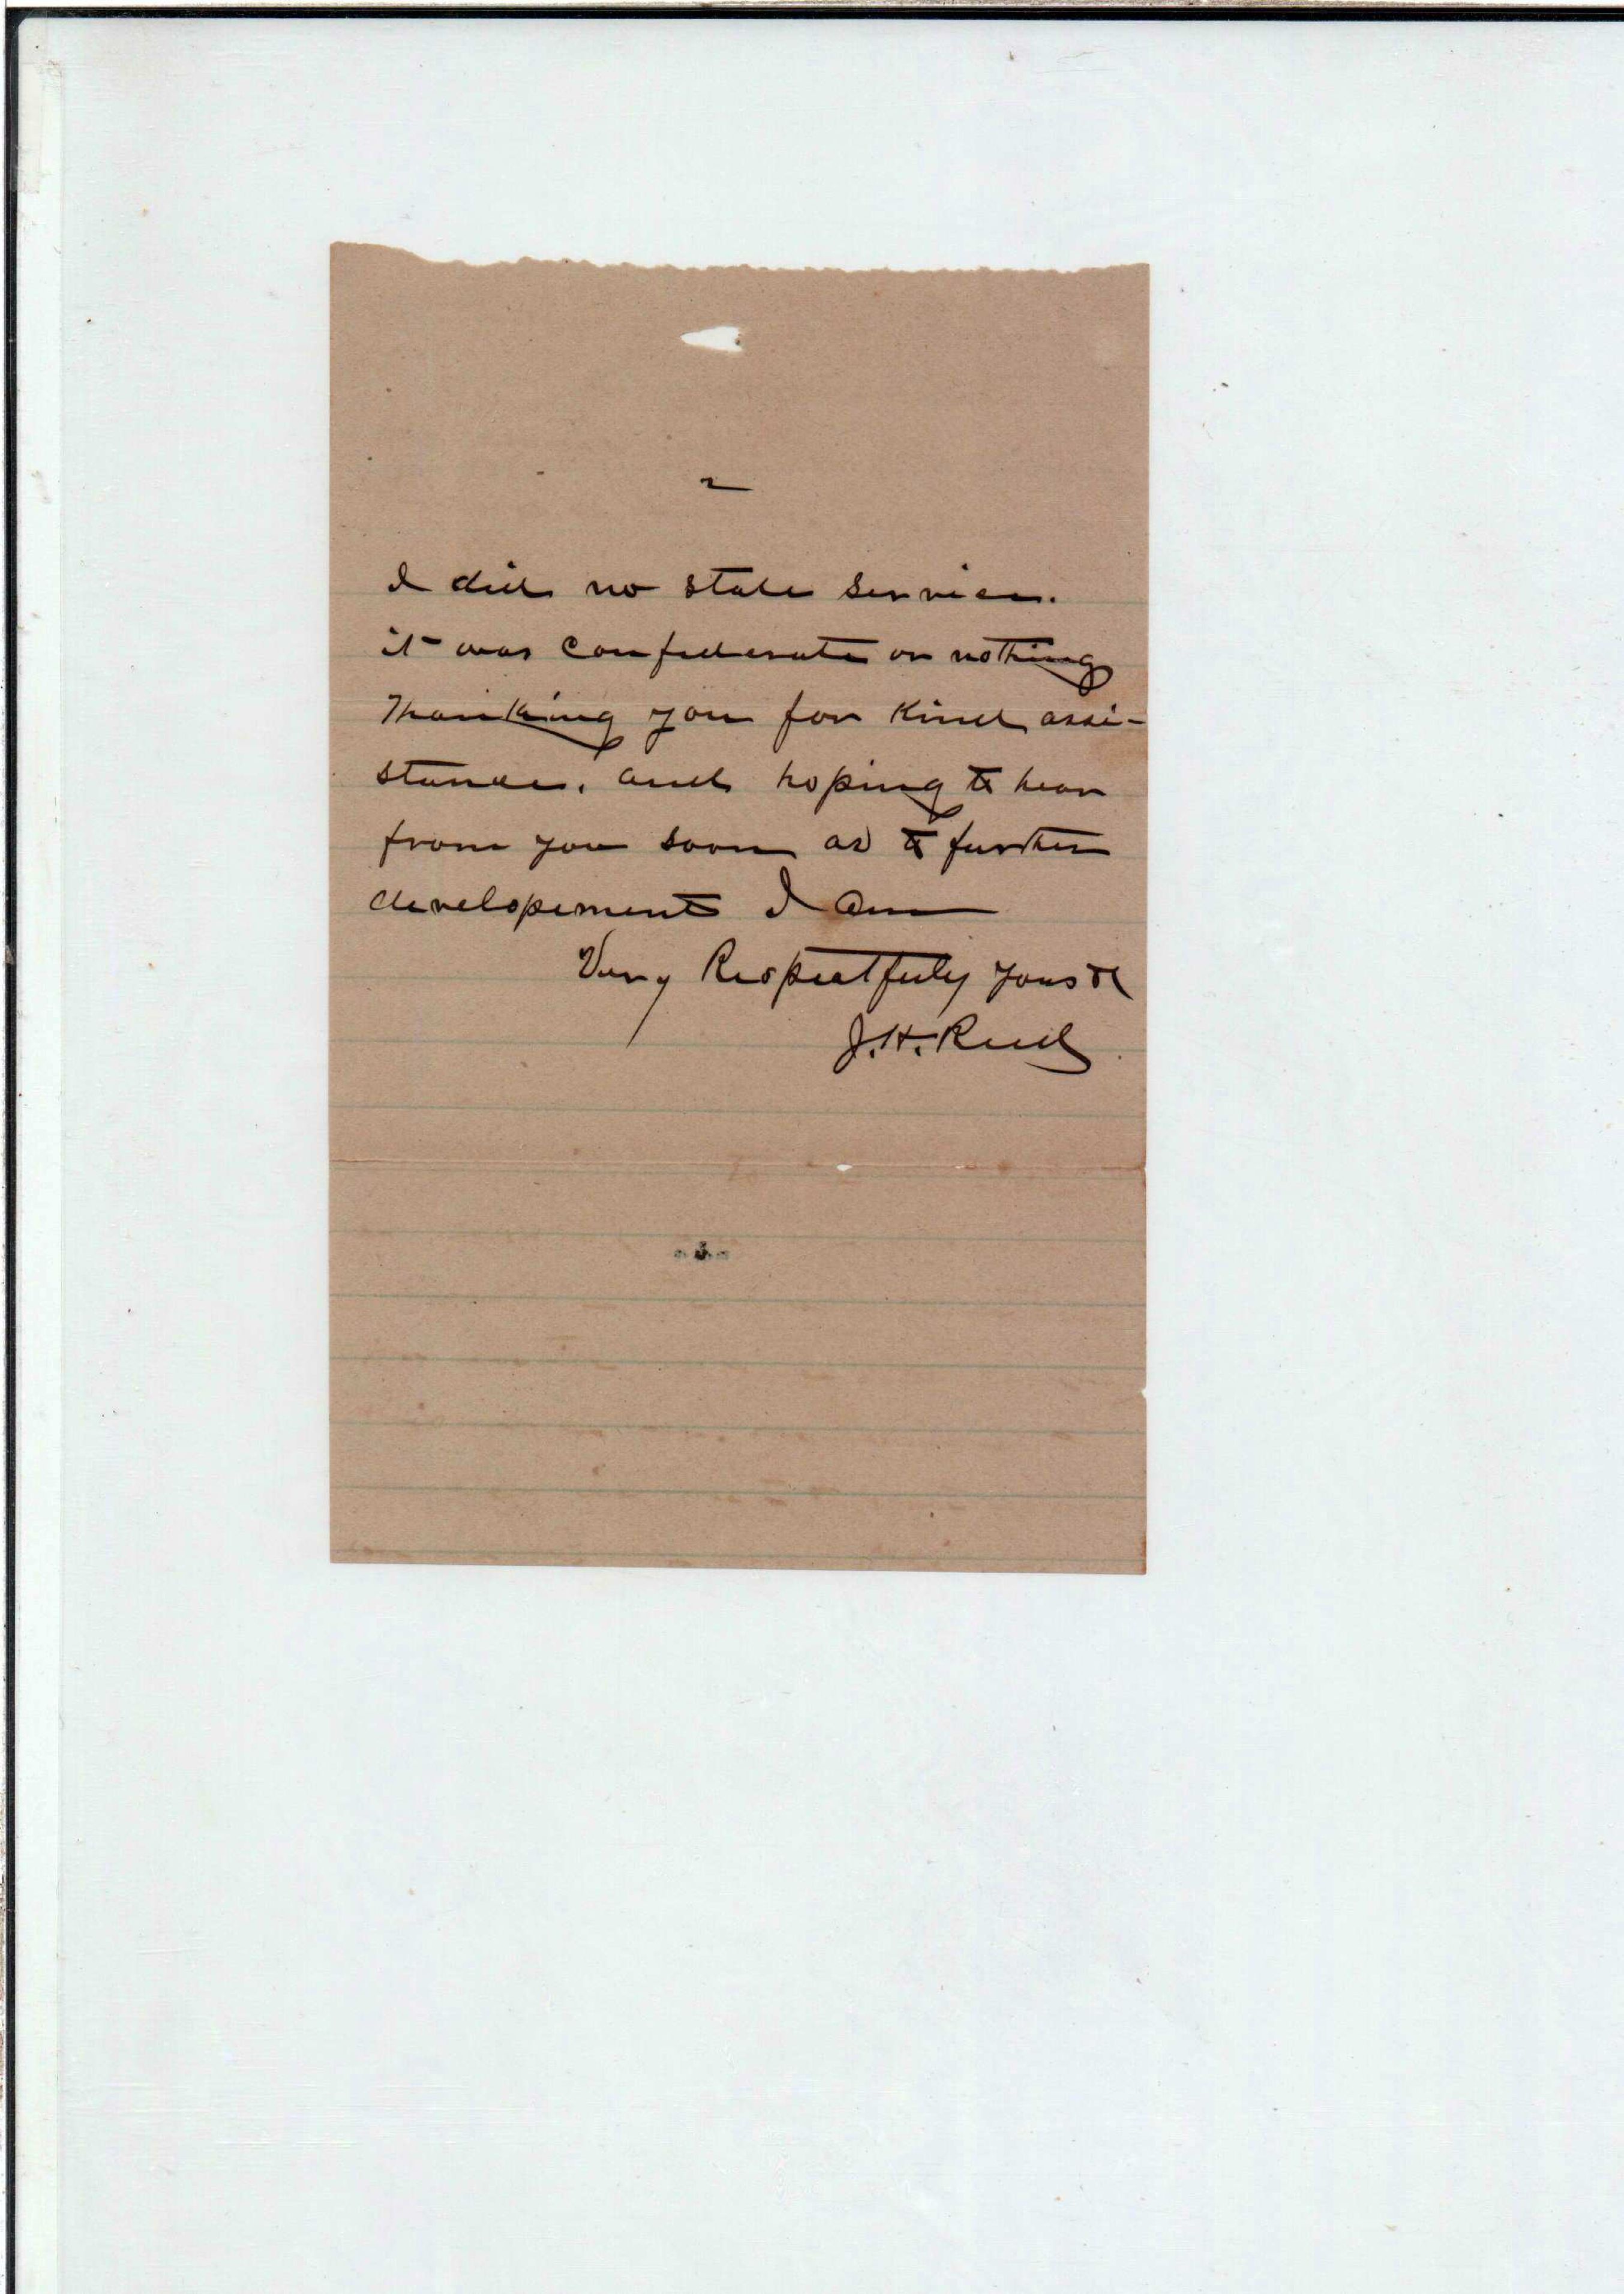 2
I did no state service.
it was confederate or nothing
Thanking you for kind assi-
stance. and hoping to hear
from you soon as to further
developement I am
Very Respectfully yours &c
J. H. Reid